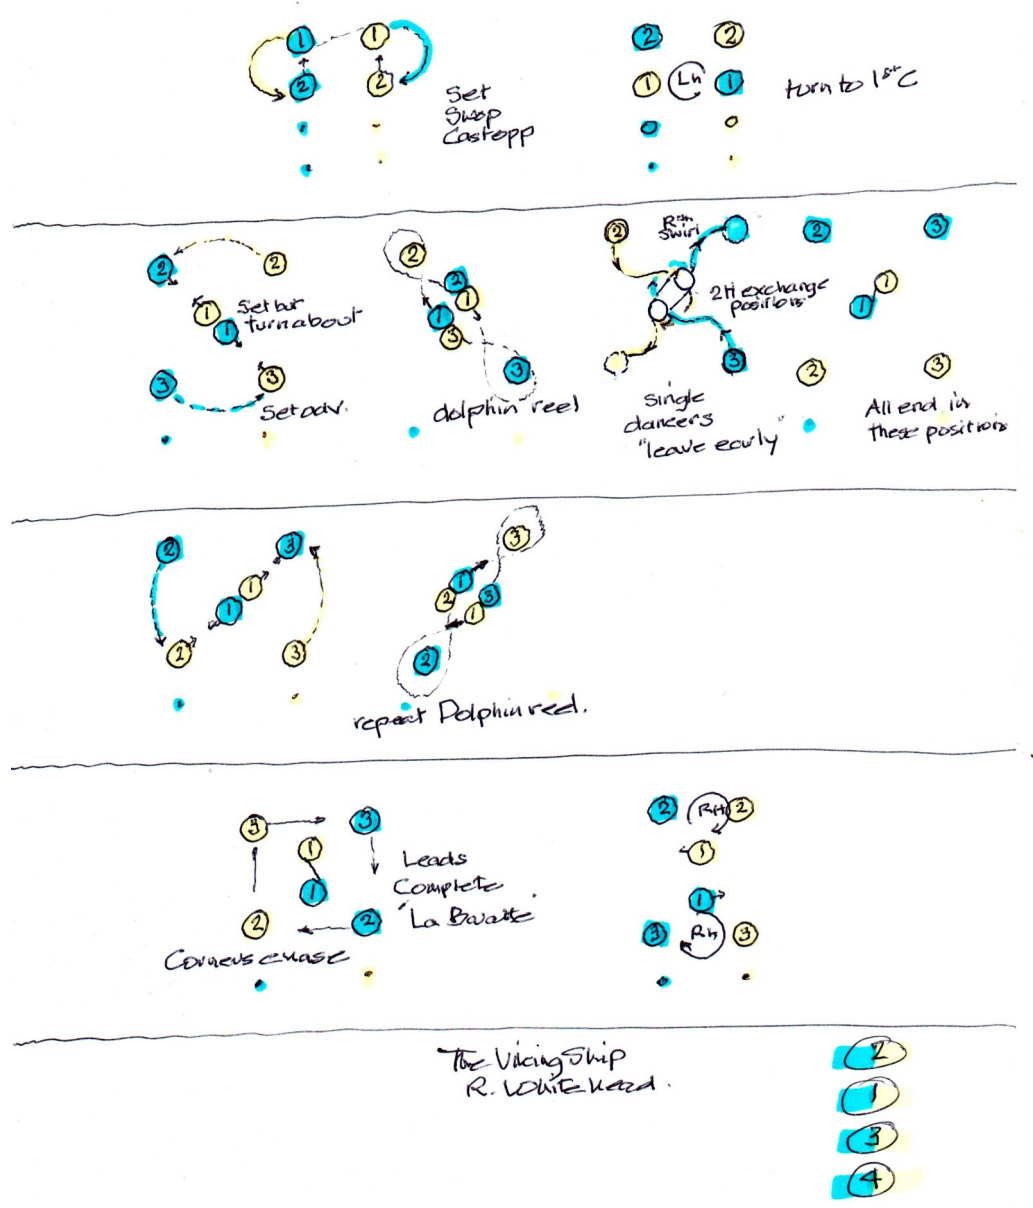 1 1
2 2
Set
Swap
Cast opp
2 2
1 Lh 1
turn to 1st C
2 2
1
1
Set but
turn about
3 3
Set adv.
2
2
1
1
3
3
dolphin reel
2
Rsh
swirl
2H exchange
positions
3
single
dancers
"leave early"
2 3
1
1
2 3
All end in
these positions
2 3
1
1
2 3
3
1
2 3
1
2
repeat Dolphin reel.
3 3
1
1
2 2
Leads
Complete
Corners chase
2 RH 2
1
1
3 Rh 3
The Viking Ship
R. Whitehead.
2
1
3
4